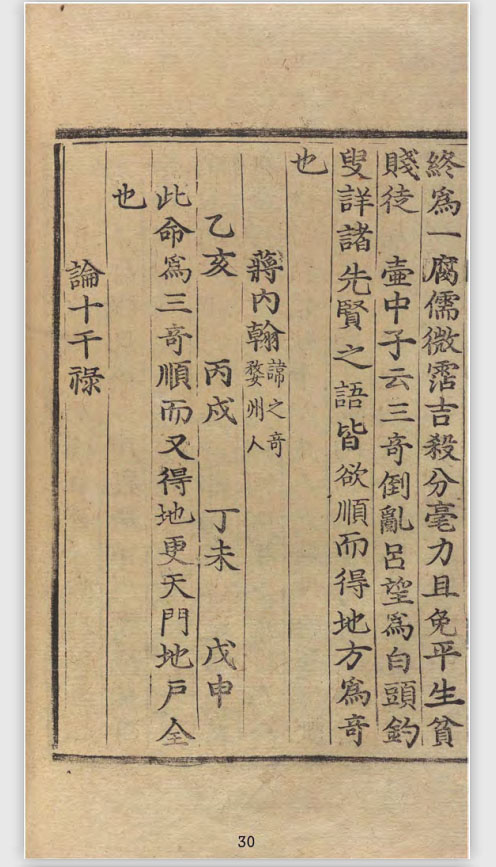 終爲一腐儒微霑吉殺分毫力且免平生貧
賤徒　壷中子云三竒倒亂呂望爲白頭釣
叟詳諸先賢之語皆欲順而得地方爲竒
也
蔣内翰諱之竒婺州人
乙亥　丙戍　丁未　戊申
此命爲三竒順而又得地更天門地戸全
也
論十干祿
30